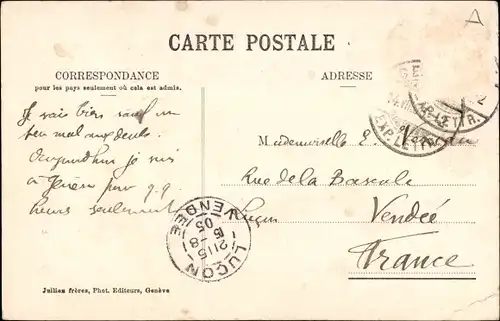 CARTE POSTALE
CORRESPONDANCE
pour les pays seulement où cela est admis.
ADRESSE
Je vais bien sauf un
peu mal aux dents.
Aujourdhui je suis
à Genève pour q.q.
heures seulement
Mademoiselle E.
Rue de la Bascule
Luçon
Vendée
France
EXP. LETTR.
EXP. LETTR.
LUÇON
21 15
8
05
VENDÉE
Jullien frères, Phot. Editeurs, Genève